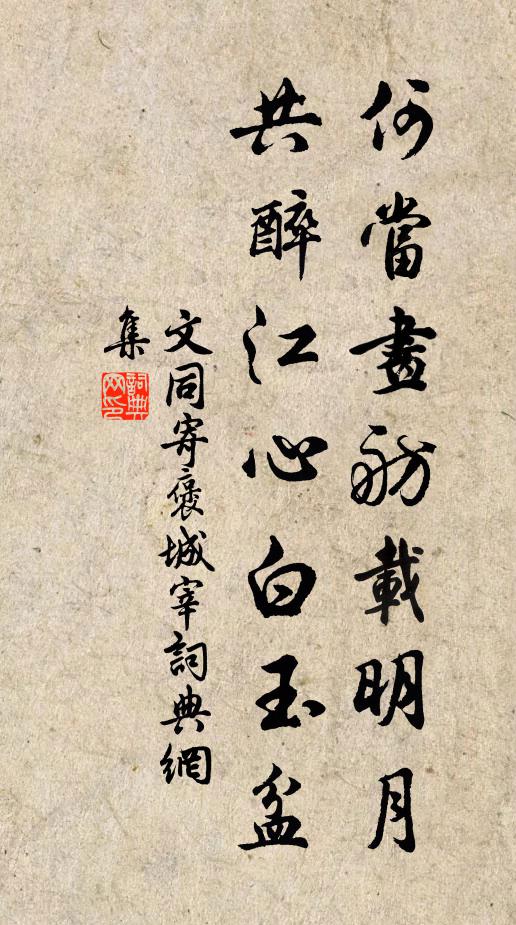 何當畫舫載明月
共醉江心白玉盆
文同寄褒城宰詞典網
集
詞典
网印